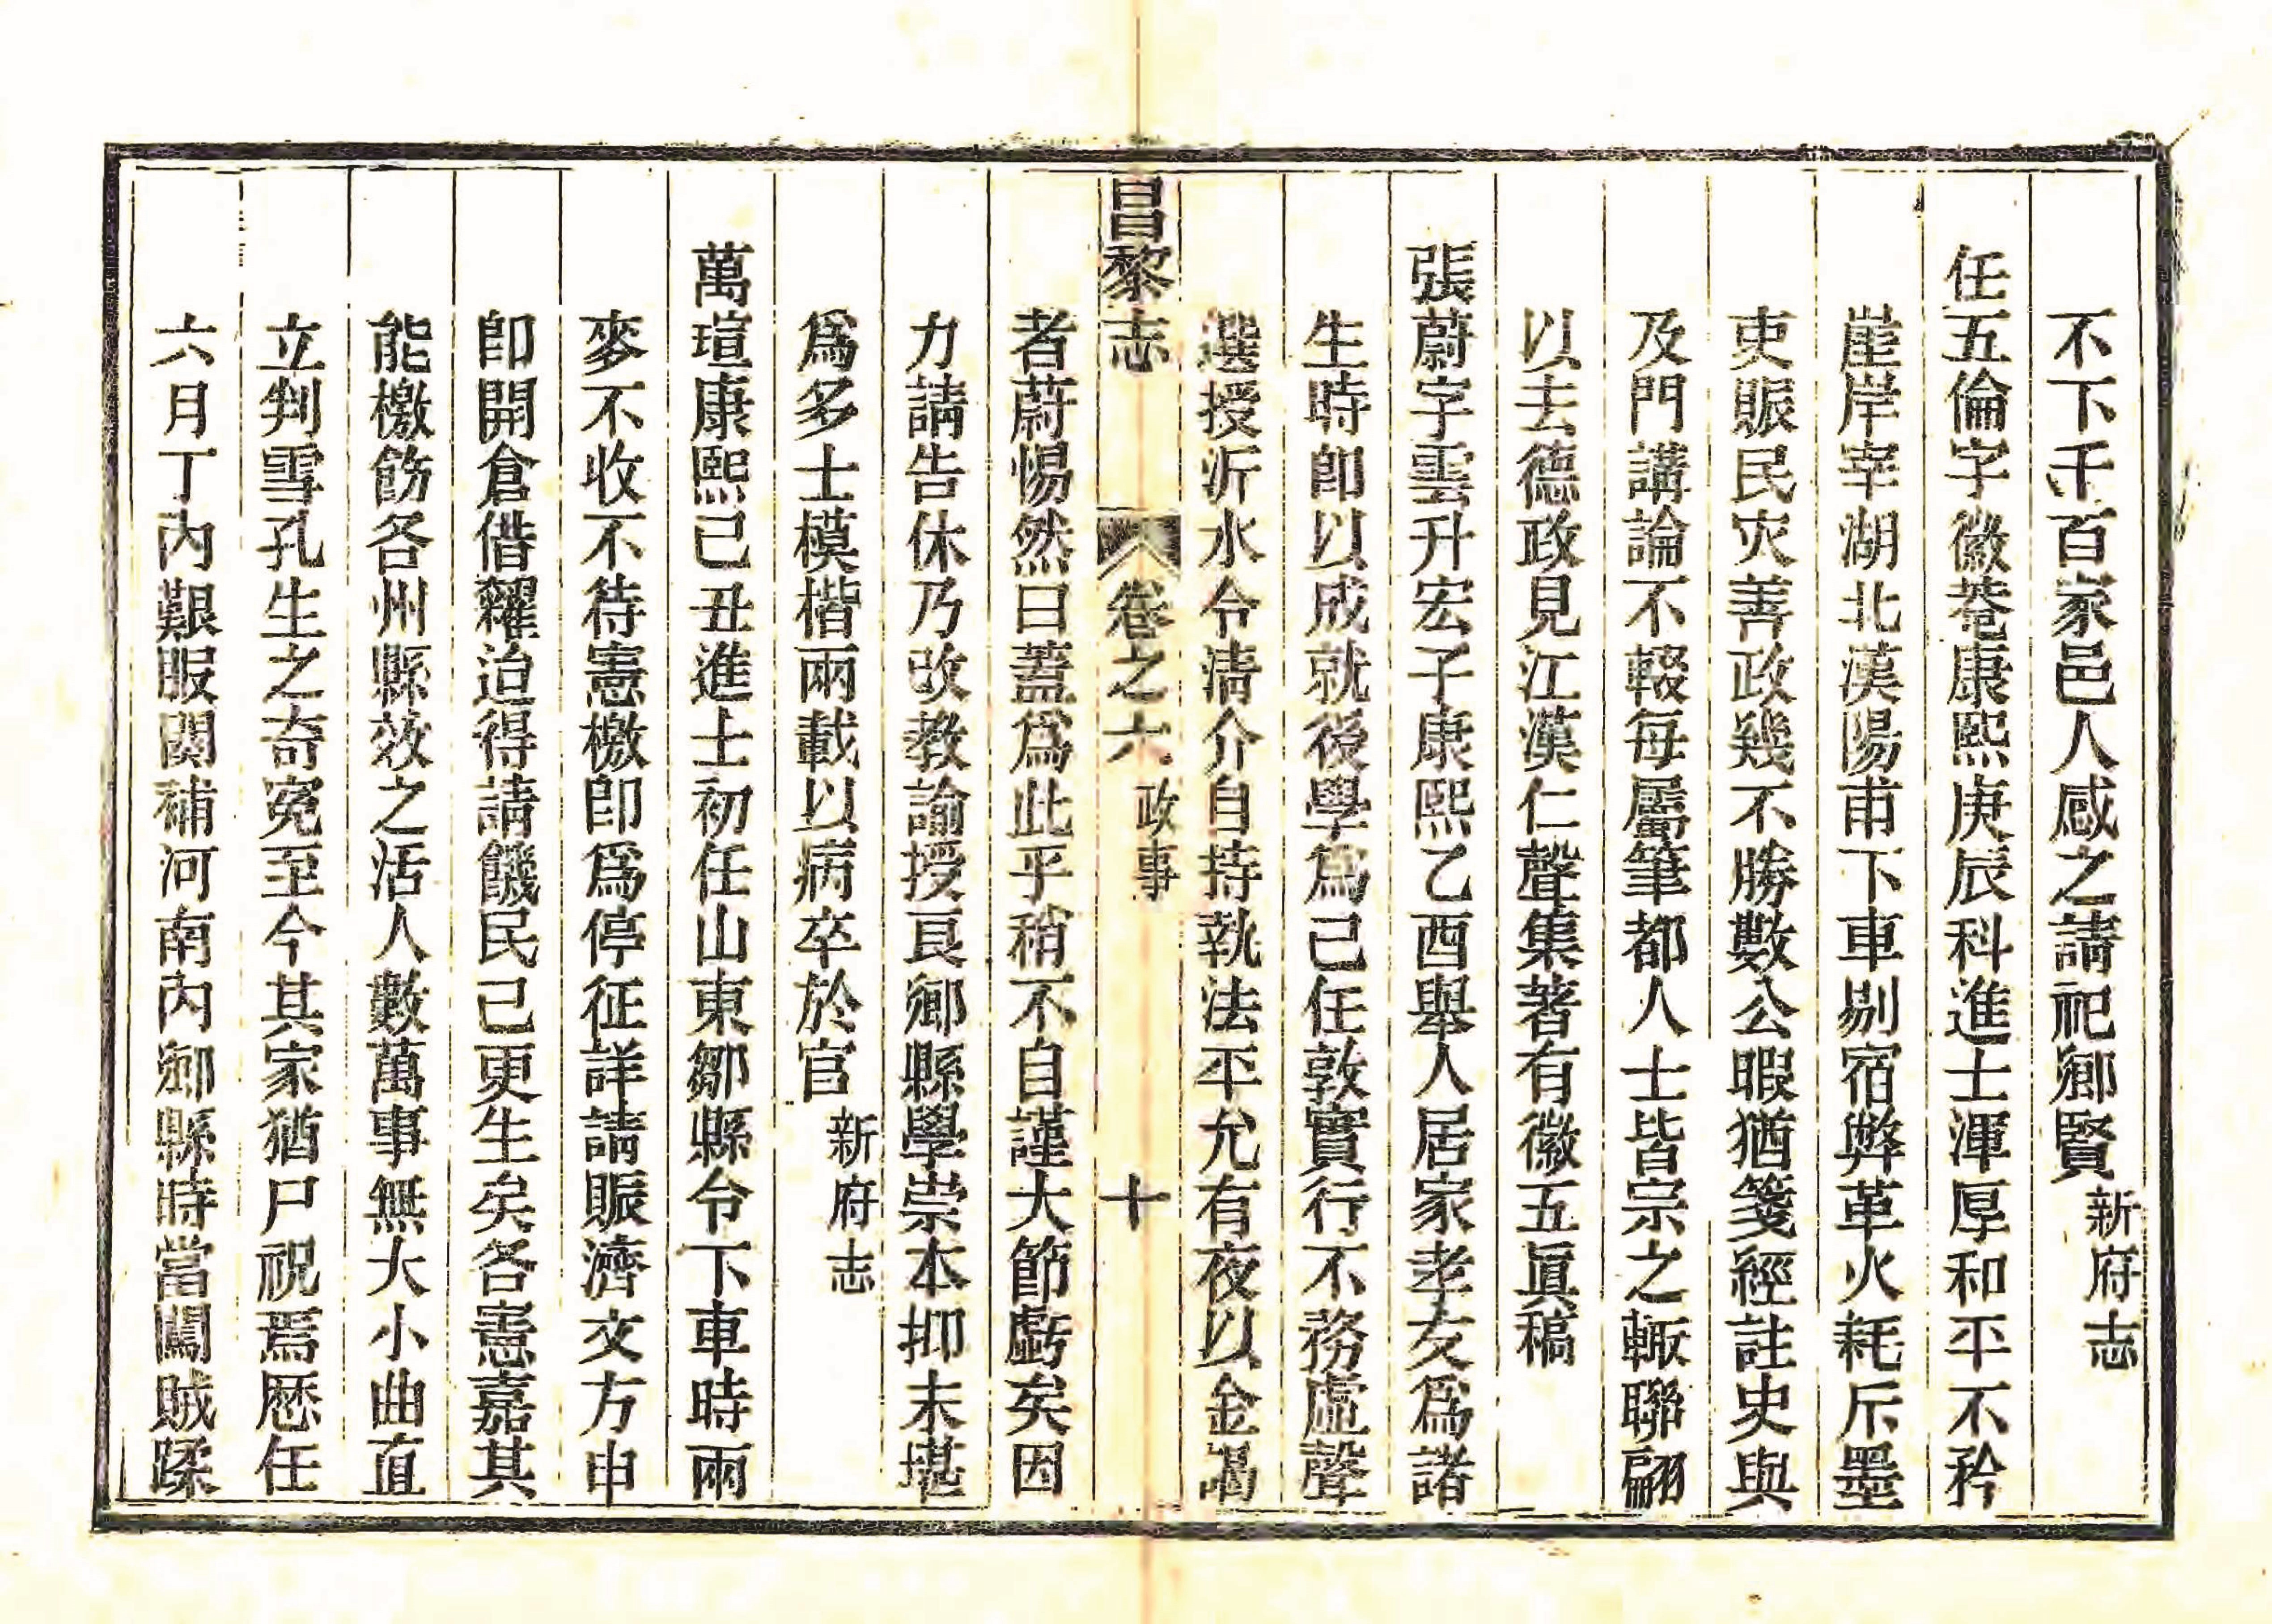 不下千百家邑人感之請祀鄉賢新府志
任五倫字徽菴康熙庚辰科進士渾厚和平不矜
崖岸宰湖北漢陽甫下車剔宿弊革火耗斥墨
吏賑民灾善政幾不勝數公暇猶箋經註史與
及門講論不輟每屬筆都人士皆宗之輙聯翩
以去德政見江漢仁聲集著有徽五眞稿
張蔚字雲升宏子康熙乙酉舉人居家孝友爲諸
生時卽以成就後學爲己任敦實行不務虛聲
選授沂水令淸介自持執法平允有夜以金謁
昌黎志 卷之六 政事 十
者蔚惕然曰蓋爲此乎稍不自謹大節虧矣因
力請告休乃改教諭授良鄉縣學崇本抑末堪
爲多士模楷兩載以病卒於官新府志
萬瑄康熙己丑進士初任山東鄒縣令下車時兩
麥不收不待憲檄卽爲停征詳請賑濟文方申
卽開倉借糶迨得請饑民已更生矣各憲嘉其
能檄飭各州縣效之活人數萬事無大小曲直
立判雪孔生之奇冤至今其家猶尸祝焉歷任
六月丁內艱服闋補河南內鄉縣時當闖賊蹂